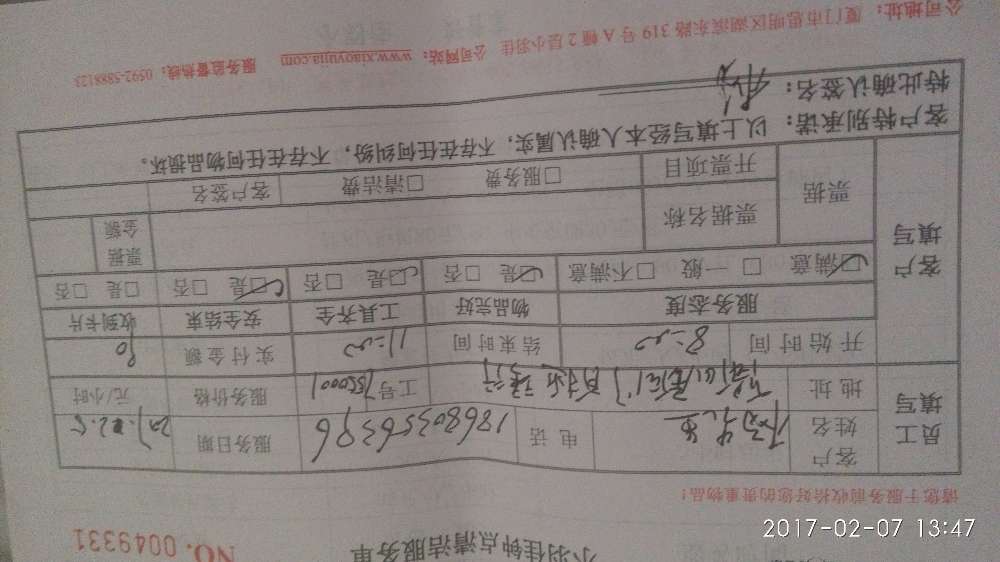 小羽佳钟点清洁服务单
NO. 0049331
请您于服务前收拾好您的贵重物品！
员工填写 客户姓名 电话 18680356396 服务日期
地址 工号 服务价格 元/小时
客户填写 开始时间 8:00 结束时间 11:00 实付金额 90
服务态度 物品完好 工具齐全 安全结束 收到卡片
☑满意 □一般 □不满意 ☑是 □否 ☑是 □否 ☑是 □否 □是 □否
票据 票据名称 票据金额
开票项目 □服务费 □清洁费 客户签名
客户特别承诺：以上填写经本人确认属实，不存在任何纠纷，不存在任何物品损坏。
特此确认签名：
公司地址：厦门市思明区湖滨东路319号A幢2层小羽佳 公司网站：www.xiaoyujia.com 服务监督热线：0592-5888123
2017-02-07 13:47